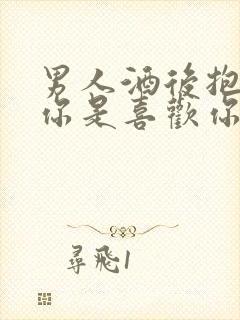 男人酒後抱
你是喜歡你
尋飛1